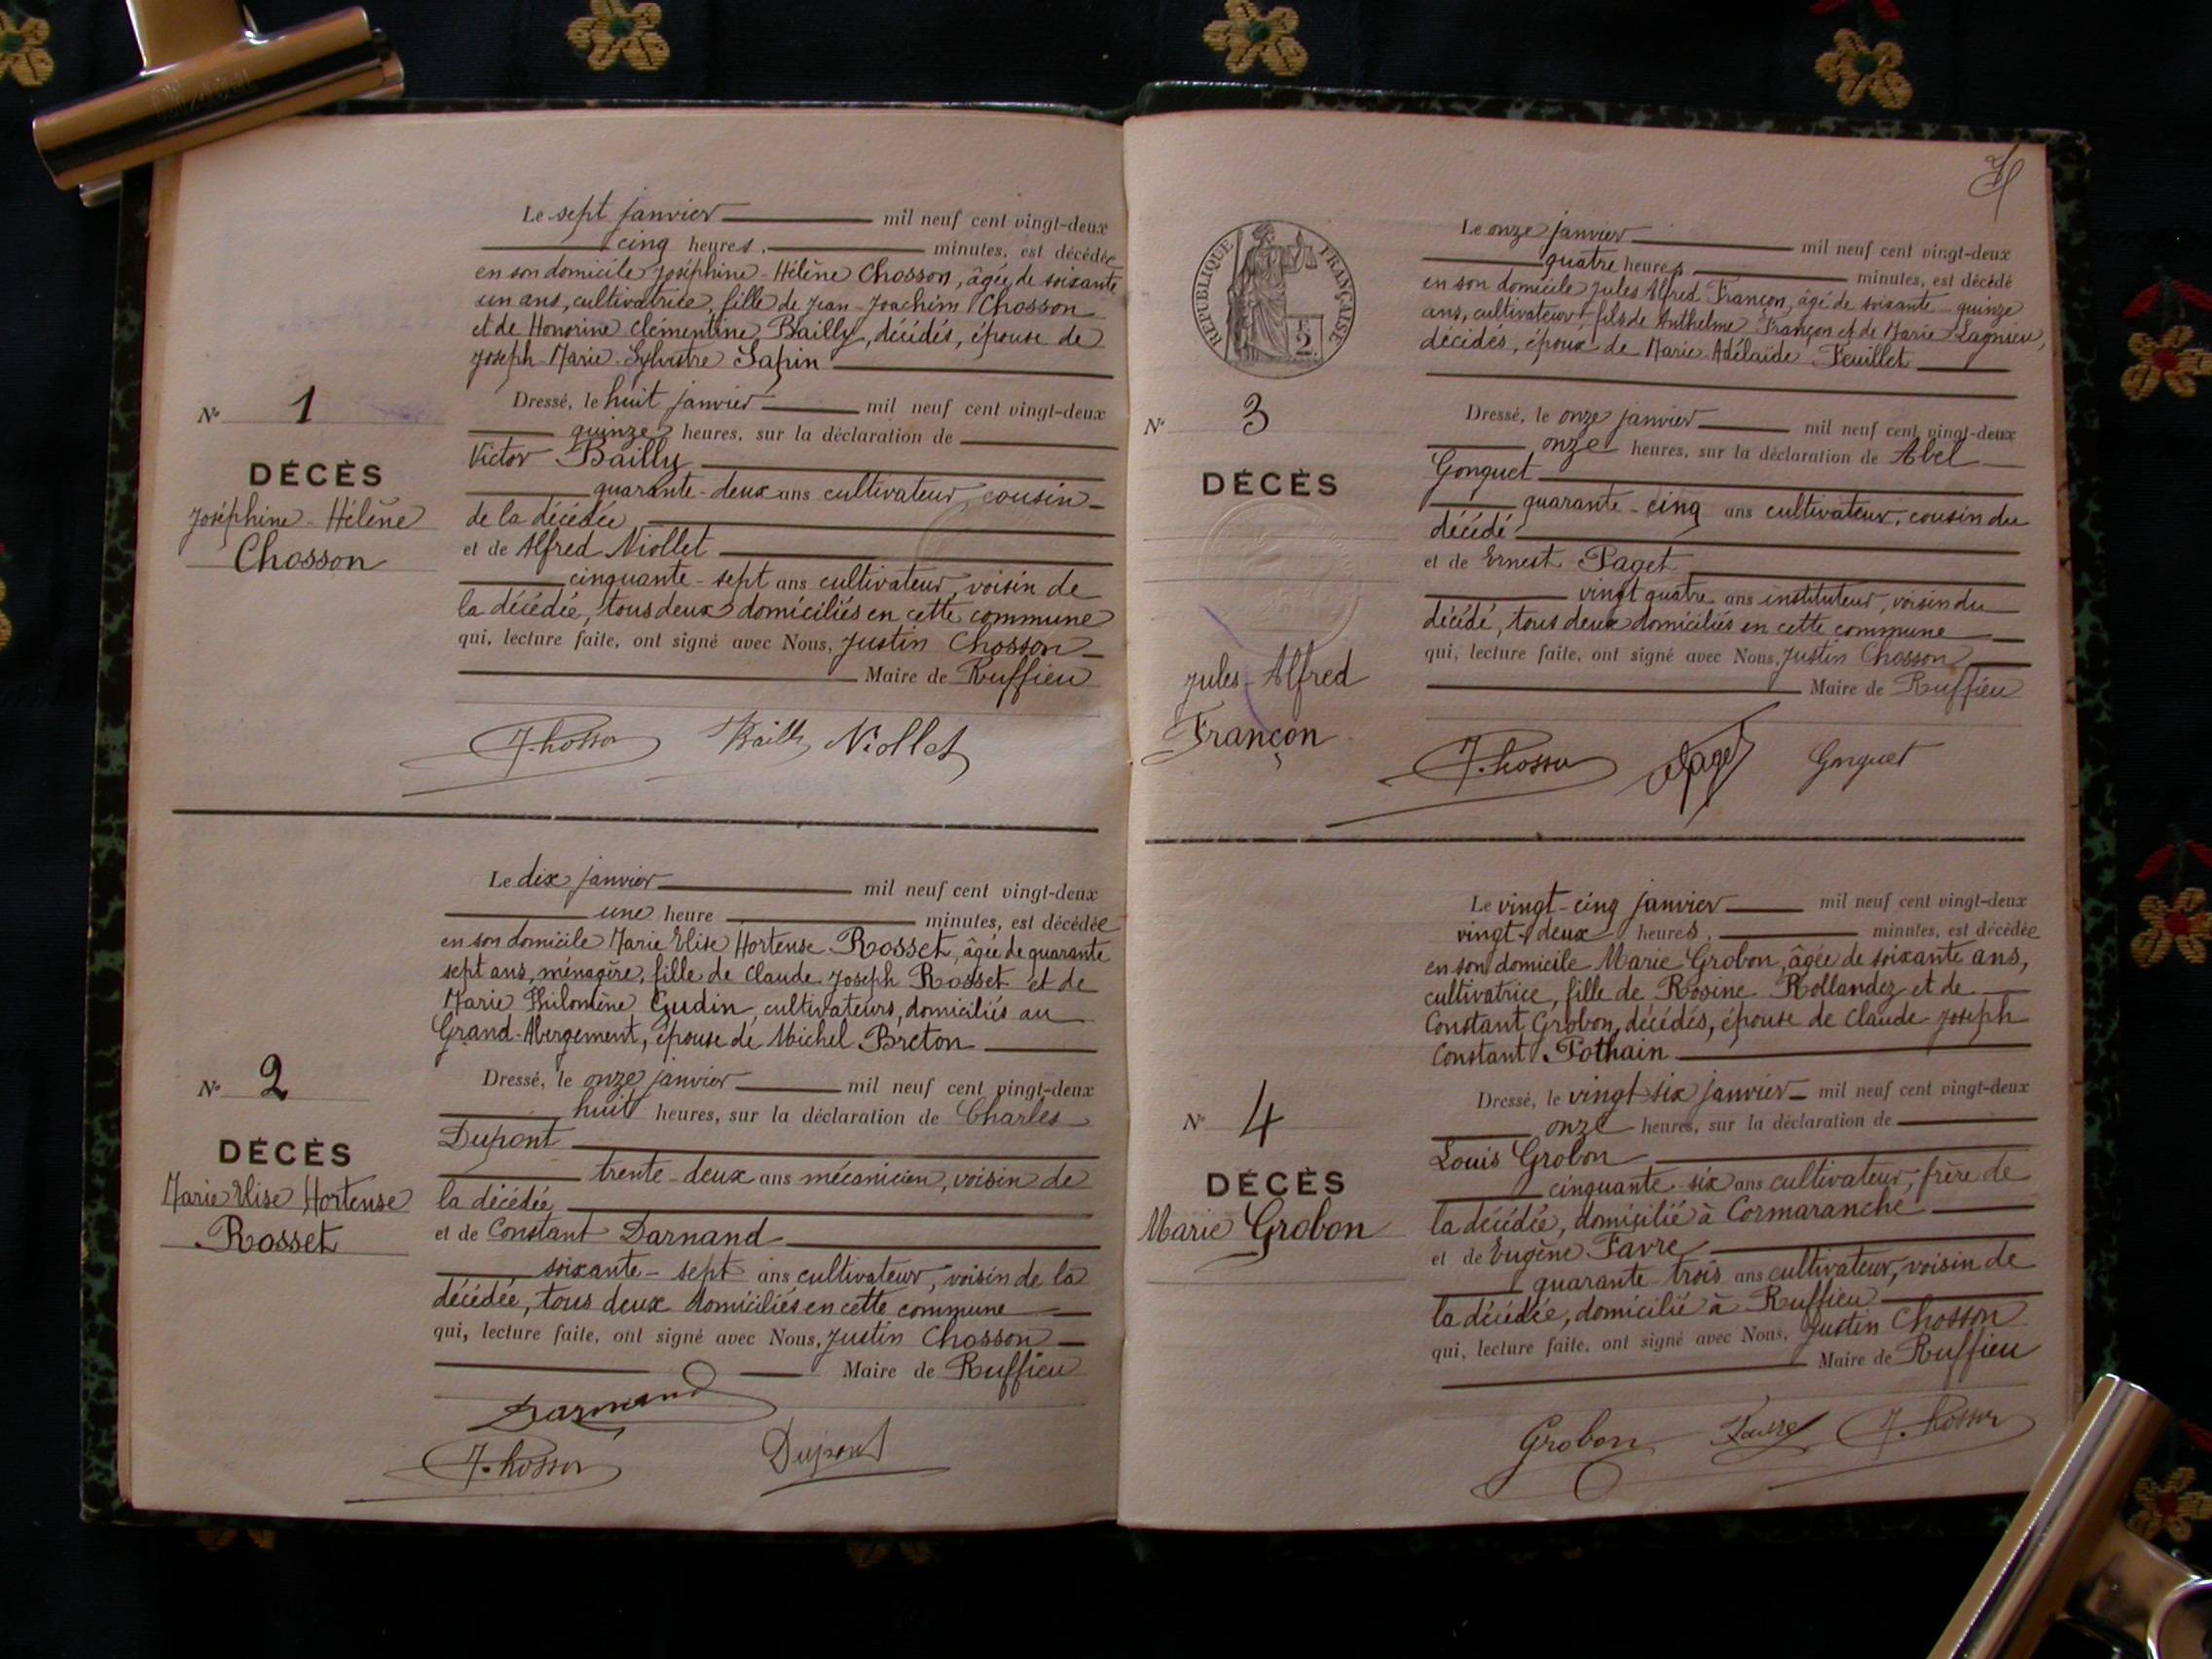 Le sept janvier mil neuf cent vingt-deux
cinq heures, minutes, est décédée
en son domicile Joséphine-Hélène Chosson, âgée de soixante
un ans, cultivatrice, fille de Jean-Joachim Chosson
et de Honorine Clémentine Bailly, décédés, épouse de
Joseph-Marie-Sylvestre Sapin
Dressé, le huit janvier mil neuf cent vingt-deux
quinze heures, sur la déclaration de
Victor Bailly
quarante-deux ans cultivateur, cousin
de la décédée
et de Alfred Niollet
cinquante-sept ans cultivateur, voisin de
la décédée, tous deux domiciliés en cette commune
qui, lecture faite, ont signé avec Nous, Justin Chosson
Maire de Ruffieu
N° 1
DÉCÈS
Joséphine-Hélène
Chosson
J. Chosson Bailly Niollet
Le dix janvier mil neuf cent vingt-deux
une heure minutes, est décédée
en son domicile Marie Elise Hortense Rosset, âgée de quarante
sept ans, ménagère, fille de Claude Joseph Rosset et de
Marie Philomène Gudin, cultivateurs, domiciliés au
Grand-Abergement, épouse de Michel Breton
Dressé, le onze janvier mil neuf cent vingt-deux
huit heures, sur la déclaration de Charles
Dupont
trente-deux ans mécanicien, voisin de
la décédée
et de Constant Darnand
soixante-sept ans cultivateur, voisin de la
décédée, tous deux domiciliés en cette commune
qui, lecture faite, ont signé avec Nous, Justin Chosson
Maire de Ruffieu
N° 2
DÉCÈS
Marie Elise Hortense
Rosset
Darnand
J. Chosson Dupont
RÉPUBLIQUE FRANÇAISE
Le onze janvier mil neuf cent vingt-deux
quatre heures minutes, est décédé
en son domicile Jules Alfred Françon, âgé de soixante-quinze
ans, cultivateur, fils de Anthelme Françon et de Marie Lagnieu,
décédés, époux de Marie-Adélaïde Feuillet
Dressé, le onze janvier mil neuf cent vingt-deux
onze heures, sur la déclaration de Abel
Gonguet
quarante-cinq ans cultivateur, cousin du
décédé
et de Ernest Paget
vingt quatre ans instituteur, voisin du
décédé, tous deux domiciliés en cette commune
qui, lecture faite, ont signé avec Nous, Justin Chosson
Maire de Ruffieu
N° 3
DÉCÈS
Jules-Alfred
Françon
J. Chosson Paget Gonguet
Le vingt-cinq janvier mil neuf cent vingt-deux
vingt-deux heures, minutes, est décédée
en son domicile Marie Grobon, âgée de soixante ans,
cultivatrice, fille de Rosine Rollandez et de
Constant Grobon, décédés, épouse de Claude Joseph
Constant Pothain
Dressé, le vingt six janvier mil neuf cent vingt-deux
onze heures, sur la déclaration de
Louis Grobon
cinquante-six ans cultivateur, frère de
la décédée, domicilié à Cormaranche
et de Eugène Favre
quarante-trois ans cultivateur, voisin de
la décédée, domicilié à Ruffieu
qui, lecture faite, ont signé avec Nous, Justin Chosson
Maire de Ruffieu
N° 4
DÉCÈS
Marie Grobon
Grobon Favre J. Chosson